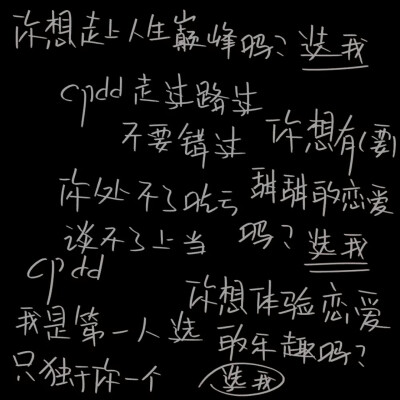 你想走上人生巅峰吗?选我
cpdd走过路过
不要错过
你想有(要)
你处不了吃亏
甜甜的恋爱
谈不了上当
吗?选我
cpdd
你想体验恋爱
我是第一人选
的乐趣吗?
只独于你一个
选我